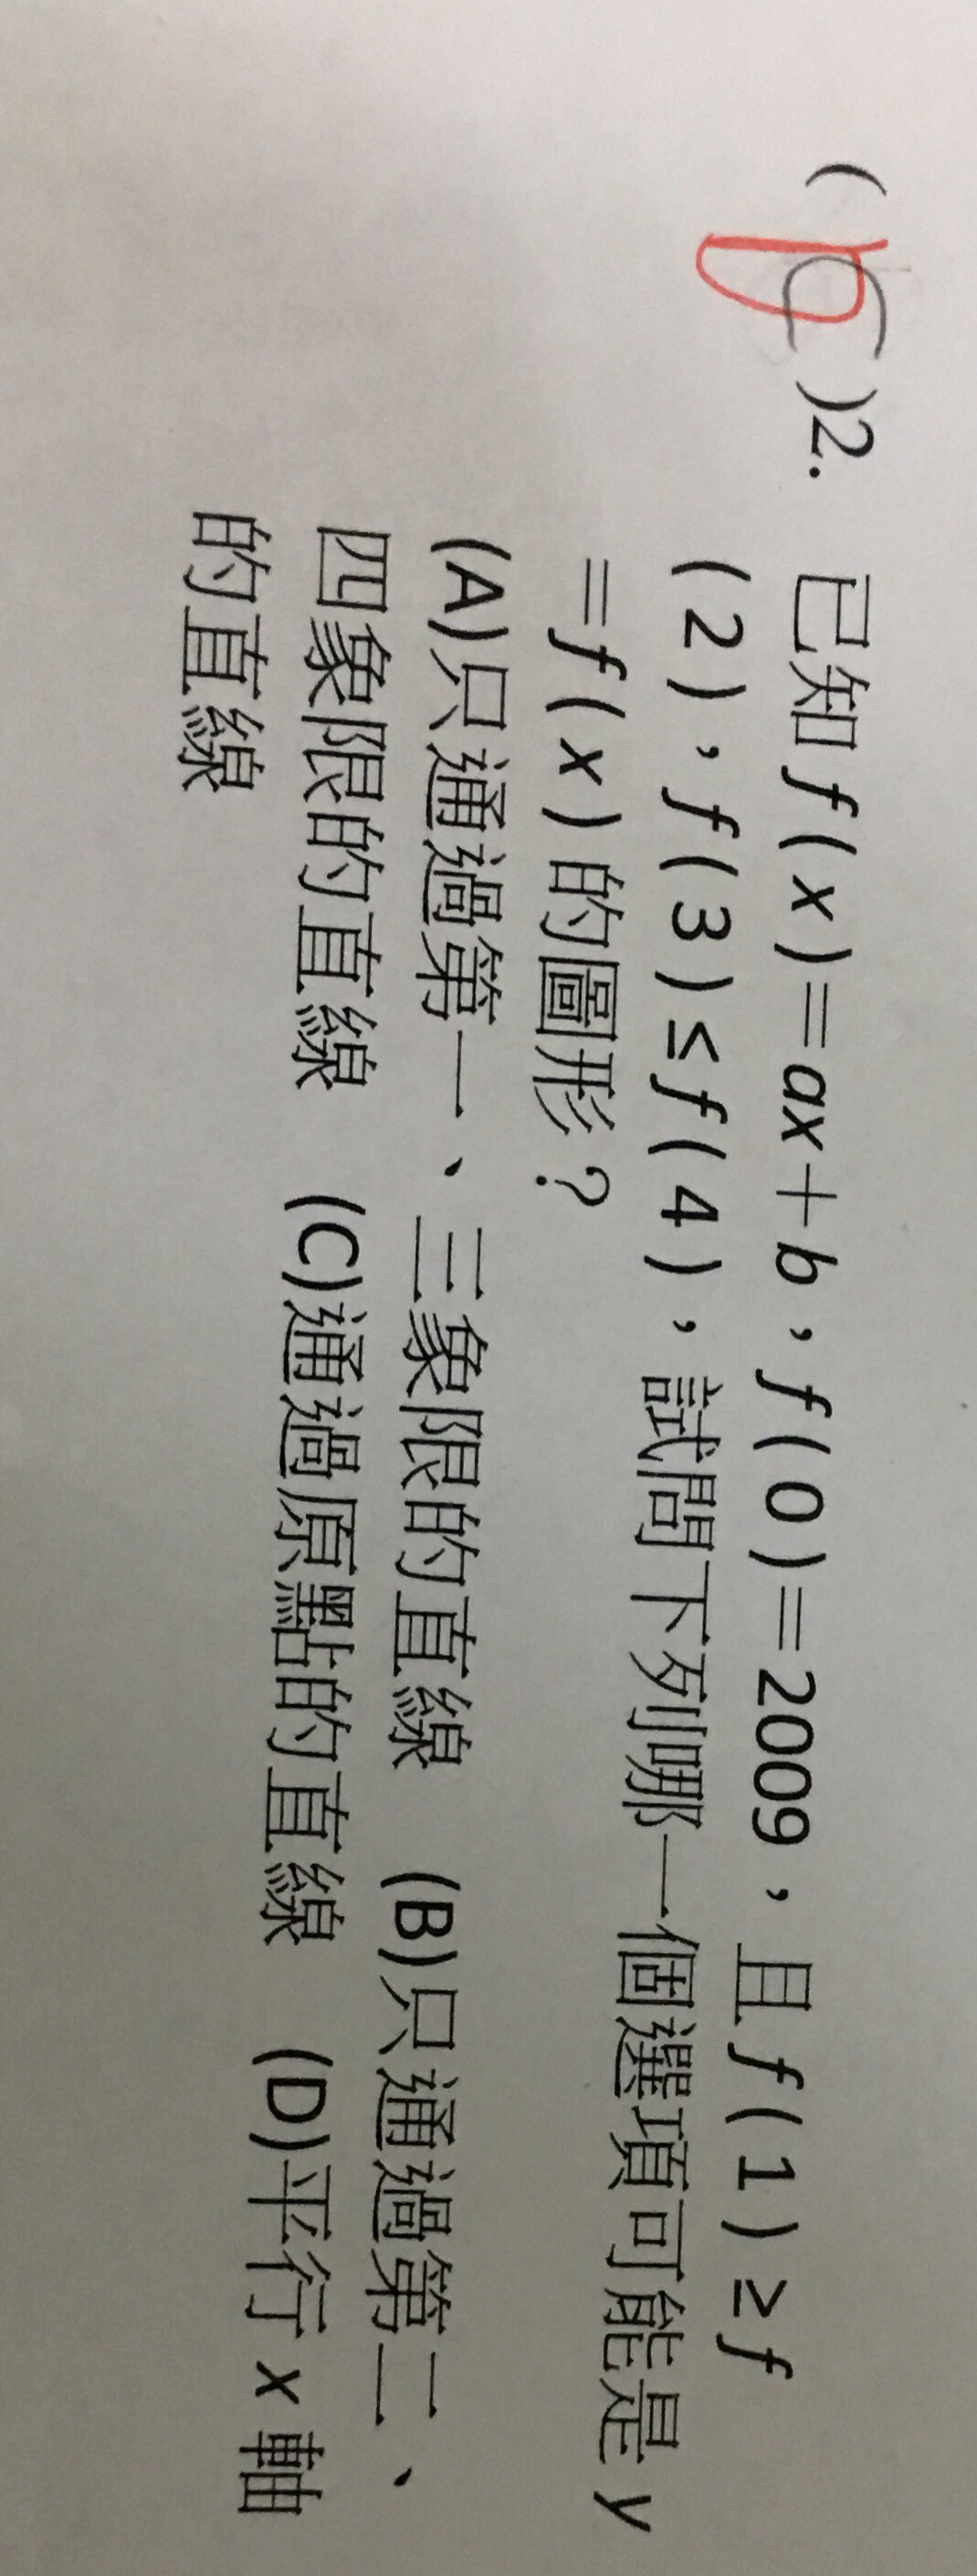 ( D )2. 已知 f(x)=ax+b，f(0)=2009，且 f(1)≥f
(2)，f(3)≤f(4)，試問下列哪一個選項可能是 y
=f(x)的圖形？
(A)只通過第一、三象限的直線 (B)只通過第二、
四象限的直線 (C)通過原點的直線 (D)平行 x 軸
的直線